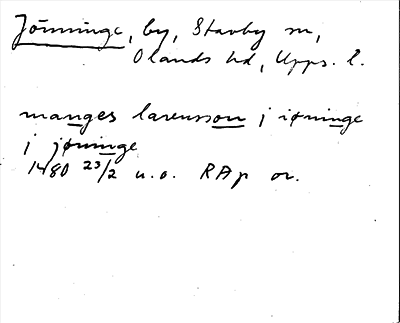 Jönninge, by, Stavby sn,
Olands hd, Upps. l.
manges larensson j iøninge
j jøninge
1480 23/2 u.o. RAp or.